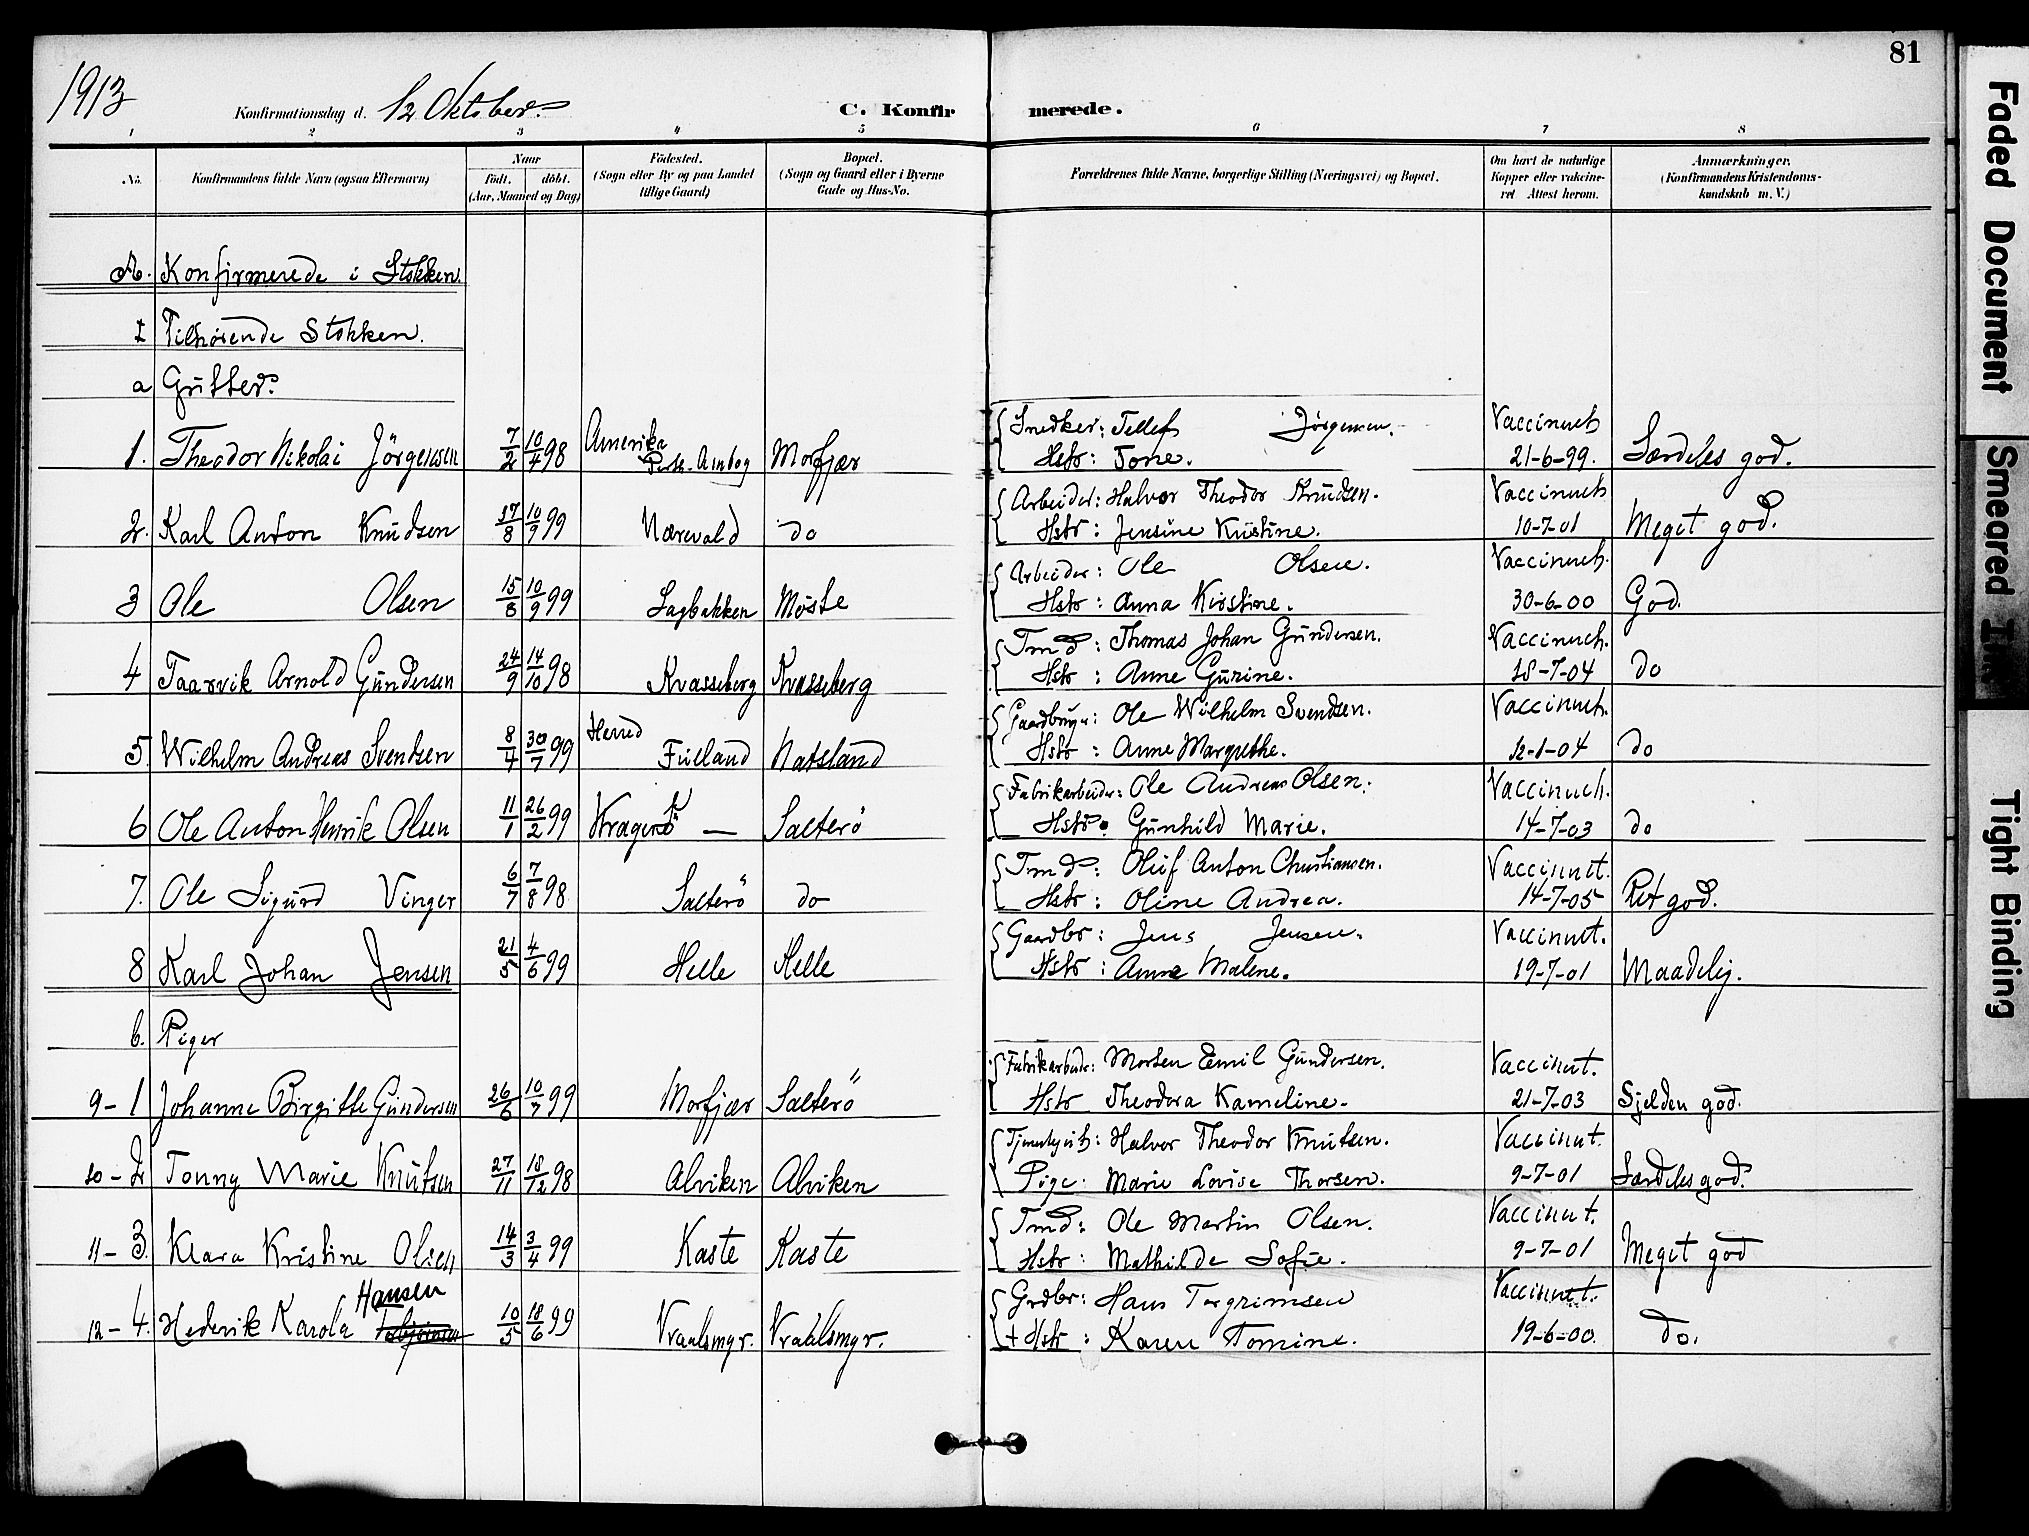 1913
81
Konfirmationsdag d. 12 Oktober.
C. Konfirmerede.
1 2 3 4 5 6 7 8
No.
Konfirmandens fulde Navn (ogsaa Efternavn)
Naar
født. døbt.
(Aar, Maaned og Dag)
Fødested.
(Sogn eller By og paa Landet
tillige Gaard)
Bopæl.
(Sogn og Gaard eller i Byerne
Gade og Hus-No.
Forældrenes fulde Navne, borgerlige Stilling (Næringsvei) og Bopæl.
Om havt de naturlige
Kopper eller vaccine-
ret Attest herom.
Anmærkninger.
(Konfirmandens Kristendoms-
kundskab m. V.)
A. Konfirmerede i Stokken.
I Tilhørende Stokken.
a Gutter.
1. Theodor Nikolai Jörgensen 7/2 10/4 98 Amerika Perth-Amboy Morfjær Snedker: Tellef Jörgensen. Vaccinueh
Hstr: Tone. 21-6-99. Særdeles god.
2. Karl Anton Knudsen 17/8 10/9 99 Nærevold do Arbeider: Halvor Theodor Knudsen. Vaccinueh
Hstr: Jensine Kristine. 10-7-01 Meget god.
3 Ole Olsen 15/8 10/9 99 Sagbakken Møste Arbeider: Ole Olsen. Vaccinueh.
Hstr: Anna Kirstine. 30-6-00 God.
4 Taarvik Arnold Gundersen 24/9 14/10 98 Kvasseberg Kvasseberg Tmd: Thomas Johan Gundersen. Vaccinueh.
Hstr: Anne Gurine. 18-7-04 do
5. Wilhelm Andreas Svendsen 8/4 30/7 99 Herred Fulland Natsland Gaardbruger: Ole Wilhelm Svendsen. Vaccinueh.
Hstr: Anne Margrethe. 12-1-04 do
6 Ole Anton Henrik Olsen 11/1 26/2 99 Kragerö — Salterö Fabrikarbeider: Ole Andreas Olsen. Vaccinueh.
Hstr: Gunhild Marie. 14-7-03 do
7. Ole Sigurd Vinger 6/7 7/8 98 Salterö do Tmd: Oluf Anton Christiansen. Vaccinut.
Hstr: Oline Andrea. 14-7-05 Ret god.
8 Karl Johan Jensen 21/5 4/6 99 Helle Helle Gaardbr: Jens Jensen. Vaccinut.
Hstr: Anne Malene. 19-7-01 Maadelig.
b. Piger
9-1 Johanne Birgitte Gundersen 26/6 10/7 99 Morfjær Salterö Fabrikarbeider: Morten Emil Gundersen. Vaccinut.
Hstr Theodora Kameline. 21-7-03 Sjelden god.
10-2 Tonny Marie Knutsen 27/11 18/12 98 Alviken Alviken Tjenestegut: Halvor Theodor Knutsen. Vaccinut.
Pige: Marie Lovise Thorsen. 9-7-01 Særdeles god.
11-3. Klara Kristine Olsen 14/3 3/4 99 Kaste Kaste Tmd: Ole Martin Olsen. Vaccinut.
Hstr: Mathilde Sofie. 9-7-01 Meget god
Hansen
12-4. Hedevik Karola 10/5 18/6 99 Vraalsmyr. Vraalsmyr. Grdbr: Hans Torgrimsen Vaccinut.
+ Hstr: Karen Tomine. 19-6-00. do.
Faded Document
Smeared Ink
Tight Binding